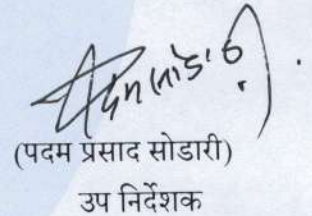 (पदम प्रसाद सोडारी)
उप निर्देशक